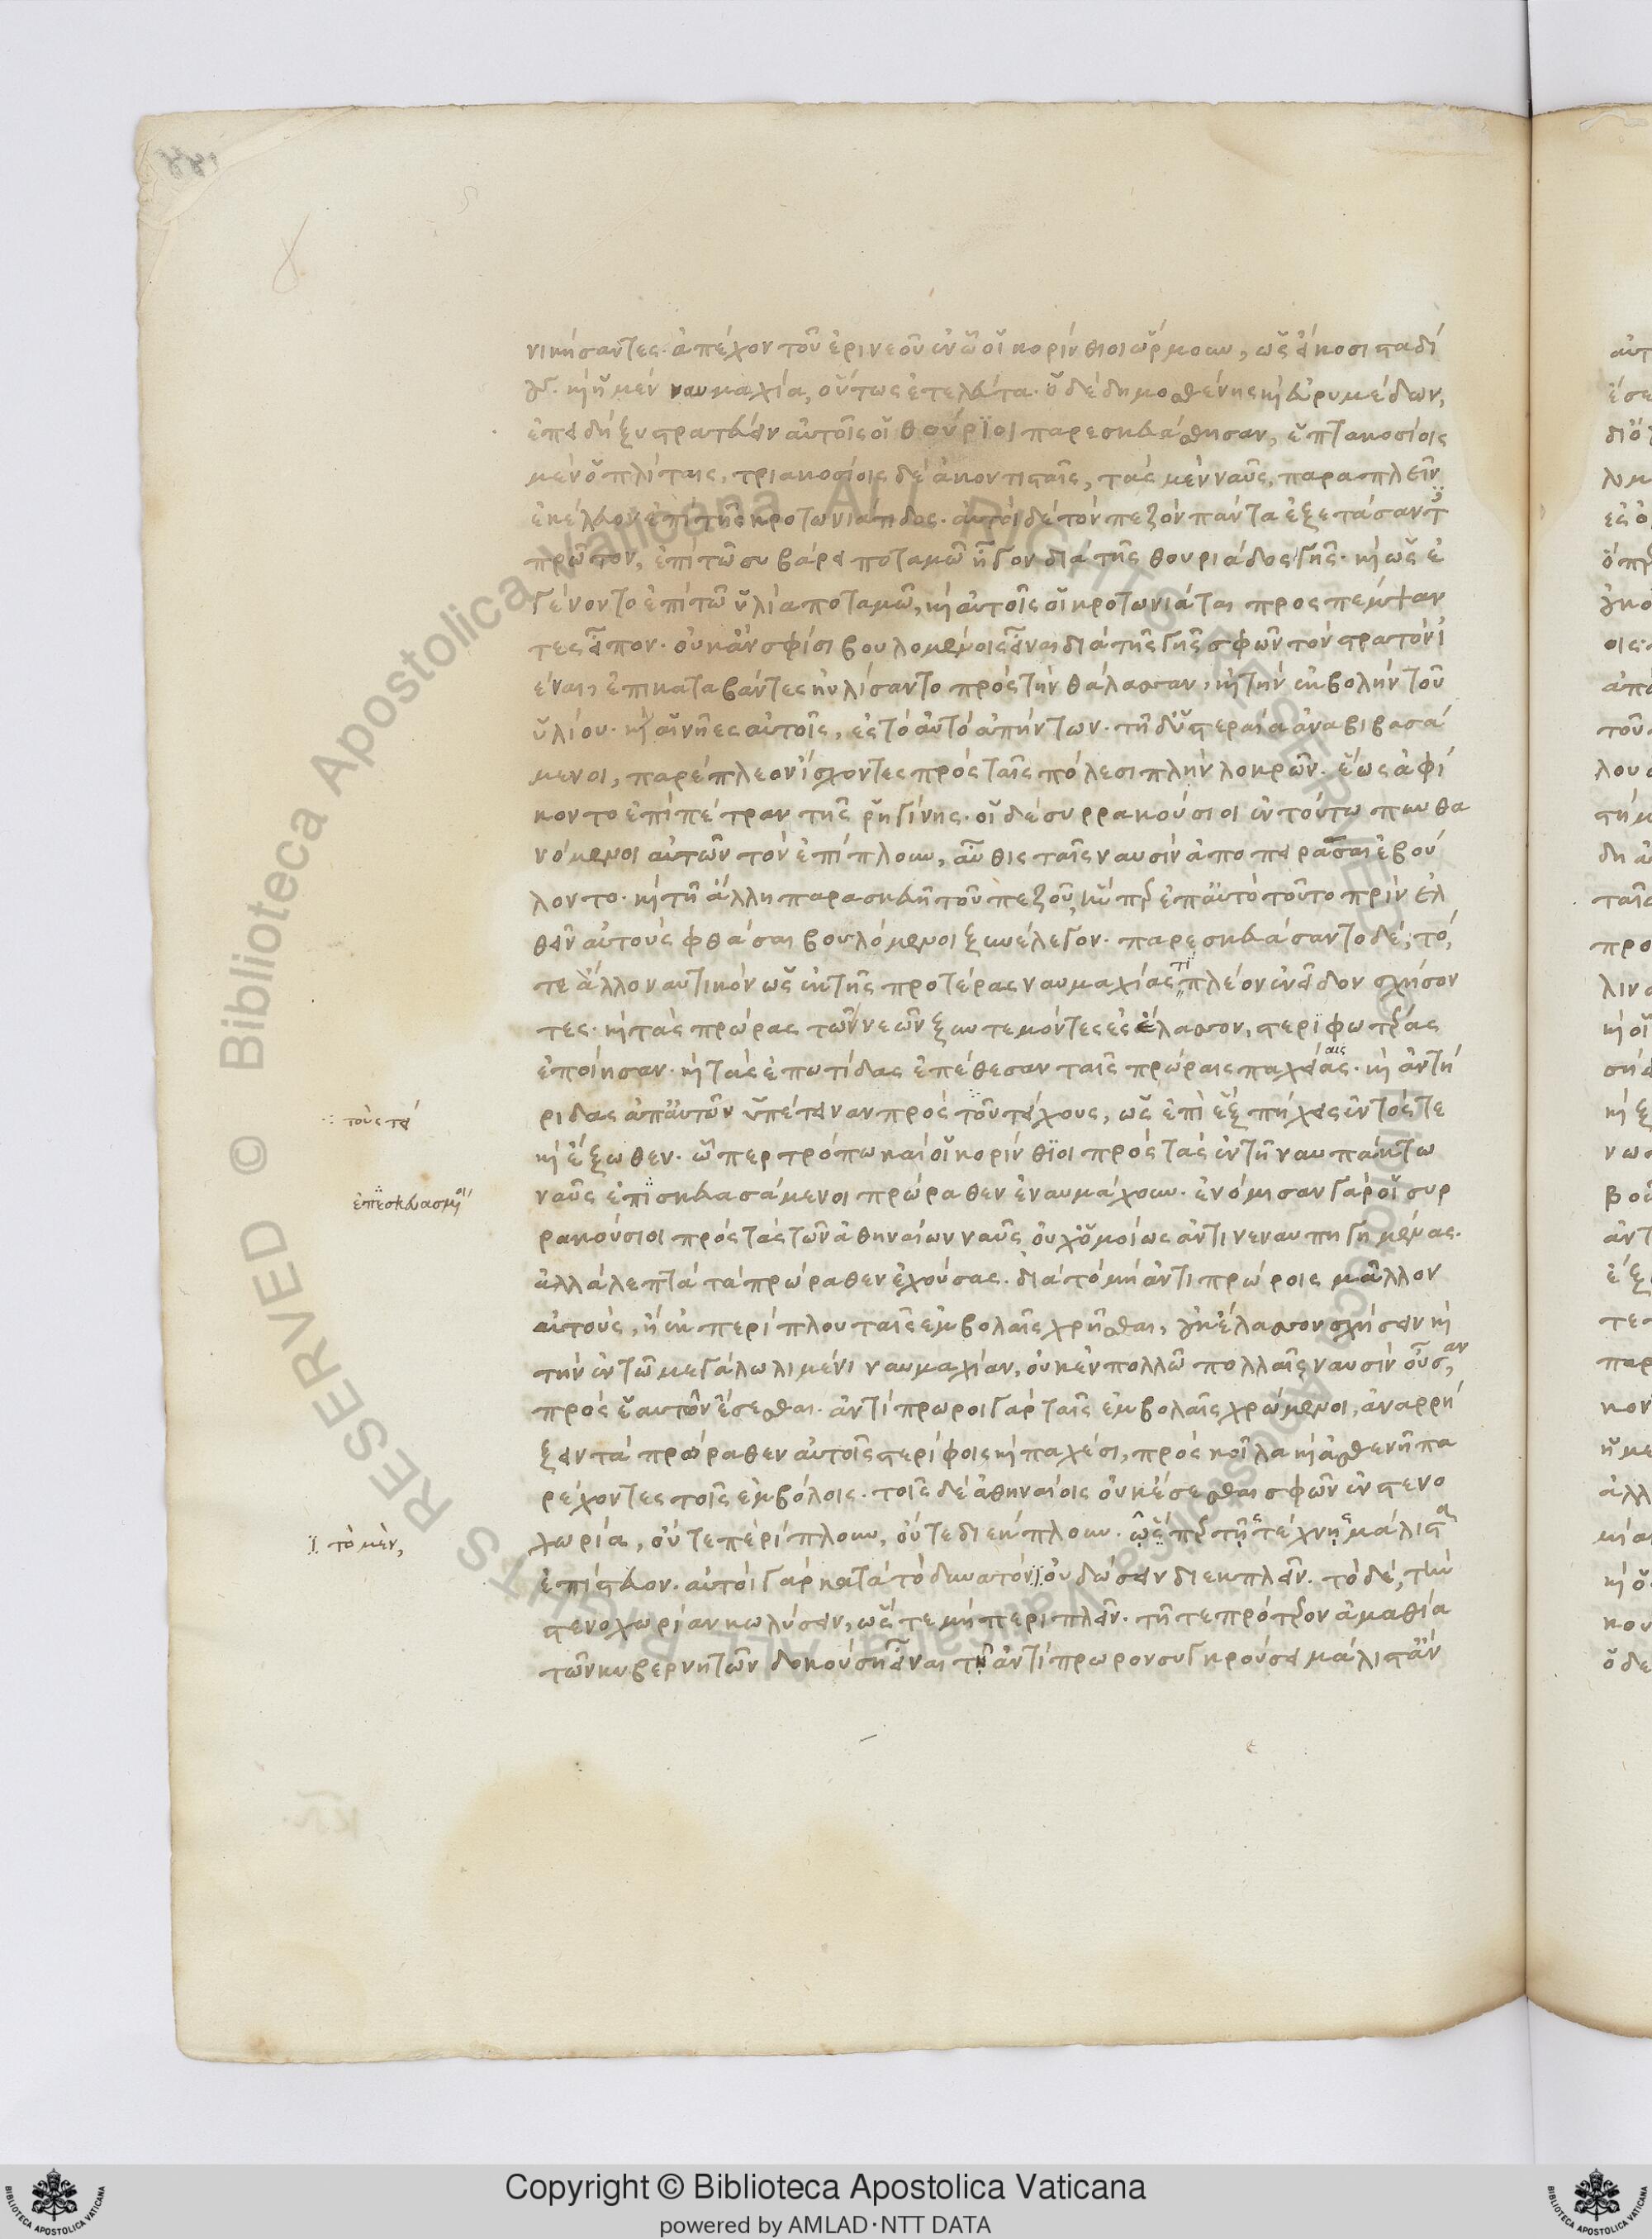 νικήσαντες. ἀπέχον τοῦ ἐρινεοῦ ἐν ᾧ οἱ κορίνθιοι ὥρμουν, ὡς εἴκοσι σταδί
ους. κὴ ἡ μὲν ναυμαχία, οὕτως ἐτελεύτα. ὁ δὲ δημοσθένης κὴ εὐρυμέδων,
ἐπειδὴ ξυστρατεύειν αὐτοῖς οἱ θούριοι παρεσκευάσθησαν, ἑπτακοσίοις
μὲν ὁπλίταις, τριακοσίοις δὲ ἀκοντισταῖς, τὰς μὲν ναῦς, παραπλεῖν
ἐκέλευον ἐπὶ τῆς κροτωνιάτιδος. αὐτοὶ δὲ τὸν πεζὸν πάντα ἐξετάσαντ
πρῶτον, ἐπὶ τῶ συβάρει ποταμῶ ἦγον διὰ τῆς θουριάδος γῆς. κὴ ὡς ἐ
γένοντο ἐπὶ τῶ ὑλία ποταμῶ, κὴ αὐτοῖς οἱ κροτωνιάται προσπέμψαν
τες εἶπον. οὐκ ἂν σφίσι βουλομένοις εἶναι διὰ τῆς γῆς σφῶν τὸν στρατὸν ἰ
έναι, ἐπικαταβάντες ηὐλίσαντο πρὸς τὴν θάλασσαν, κὴ τὴν ἐκβολὴν τοῦ
ὑλίου. κὴ αἱ νῆες αὐτοῖς, ἐς τὸ αὐτὸ ἀπήντων. τῆ δ' ὑστεραία ἀναβιβασά
μενοι, παρέπλεον ἴσχοντες πρὸς ταῖς πόλεσι πλὴν λοκρῶν. ἕως ἀφί
κοντο ἐπὶ πέτραν τῆς ῥηγίνης. οἱ δὲ συρρακούσιοι ἐν τούτω πυνθα
νόμενοι αὐτῶν τὸν ἐπίπλουν, αὖθις ταῖς ναυσὶν ἀποπειρᾶσαι ἐβού
λοντο. κὴ τῆ ἄλλη παρασκευῆ τοῦ πεζοῦ, ἥνπερ ἐπ' αὐτὸ τοῦτο πρὶν ἐλ
θεῖν αὐτοὺς φθάσαι βουλόμενοι ξυνέλεγον. παρεσκευάσαντο δὲ, τό,
τε ἄλλο ναυτικὸν ὡς ἐκ τῆς προτέρας ναυμαχίας τι πλέον ἐνεῖδον σχήσον
τες. κὴ τὰς πρώρας τῶν νεῶν ξυντεμόντες ἐς ἔλασσον, στεριφωτέρας
ἐποίησαν. κὴ τὰς ἐπωτίδας ἐπέθεσαν ταῖς πρώραις παχείας. κὴ ἀντή
ριδας ἀπ' αὐτῶν ὑπέτειναν πρὸς τοῦ τείχους, ὡς ἐπὶ ἓξ πήχεις ἐντός τε
κὴ ἔξωθεν. ὧπερ τρόπω καὶ οἱ κορίνθιοι πρὸς τὰς ἐν τῆ ναυπάκτω
ναῦς ἐπισκευασάμενοι πρώραθεν ἐναυμάχουν. ἐνόμισαν γὰρ οἱ συρ
ρακούσιοι πρὸς τὰς τῶν ἀθηναίων ναῦς οὐχ ὁμοίως ἀντινεναυπηγημένας.
ἀλλὰ λεπτὰ τὰ πρώραθεν ἐχούσας. διὰ τὸ μὴ ἀντιπρώροις μᾶλλον
αὐτοὺς, ἢ ἐκ περίπλου ταῖς ἐμβολαῖς χρῆσθαι, οὐκ ἔλασσον σχήσειν κὴ
τὴν ἐν τῶ μεγάλω λιμένι ναυμαχίαν, οὐκ ἐν πολλῶ πολλαῖς ναυσὶν οὖσαν,
πρὸς ἑαυτῶν ἔσεσθαι. ἀντίπρωροι γὰρ ταῖς ἐμβολαῖς χρώμενοι, ἀναρρή
ξειν τὰ πρώραθεν αὐτοῖς στερίφοις κὴ παχέσι, πρὸς κοῖλα κὴ ἀσθενῆ πα
ρέχοντες τοῖς ἐμβόλοις. τοῖς δὲ ἀθηναίοις οὐκ ἔσεσθαι σφῶν ἐν στενο
χωρία, οὔτε περίπλουν, οὔτε διέκπλουν. ὧπερ τῆς τέχνης μάλιστα
ἐπίστευον. αὐτοὶ γὰρ κατὰ τὸ δυνατὸν οὐ δώσειν διεκπλεῖν. τὸ δὲ, τὴν
στενοχωρίαν κωλύσειν, ὥστε μὴ περιπλεῖν. τῆ τε πρότερον ἀμαθία
τῶν κυβερνητῶν δοκούση εἶναι τῆ ἀντίπρωρον συγκρούσει μάλιστ' ἂν
τοὺς τεί
ἐπεσκευασμένοι
τὸ μὲν,
Copyright © Biblioteca Apostolica Vaticana
powered by AMLAD·NTT DATA